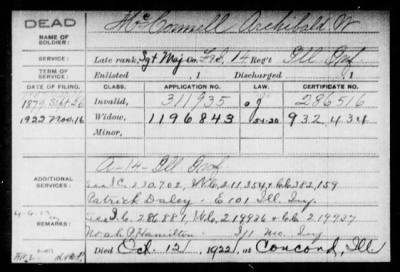 DEAD
NAME OF SOLDIER:
McConnell Archibald W
SERVICE:
Late rank, Sgt Maj Co. F&S, 14 Reg't Ill Inf
TERM OF SERVICE:
Enlisted , 1 Discharged , 1
DATE OF FILING. CLASS. APPLICATION NO. LAW. CERTIFICATE NO.
1879 Sept 26 Invalid, 311935 286516
1922 Nov. 16 Widow, 1196843 5-1-20 932434
Minor,
ADDITIONAL SERVICES:
Co-14-Ill Inf
270,702, 382,159
Patrick Daley - E 101 Ill. Inf.
REMARKS:
286881, 219927
Noah Hamilton - 3 Mo. Inf
Died Oct. 12, 1922, at Concord, Ill